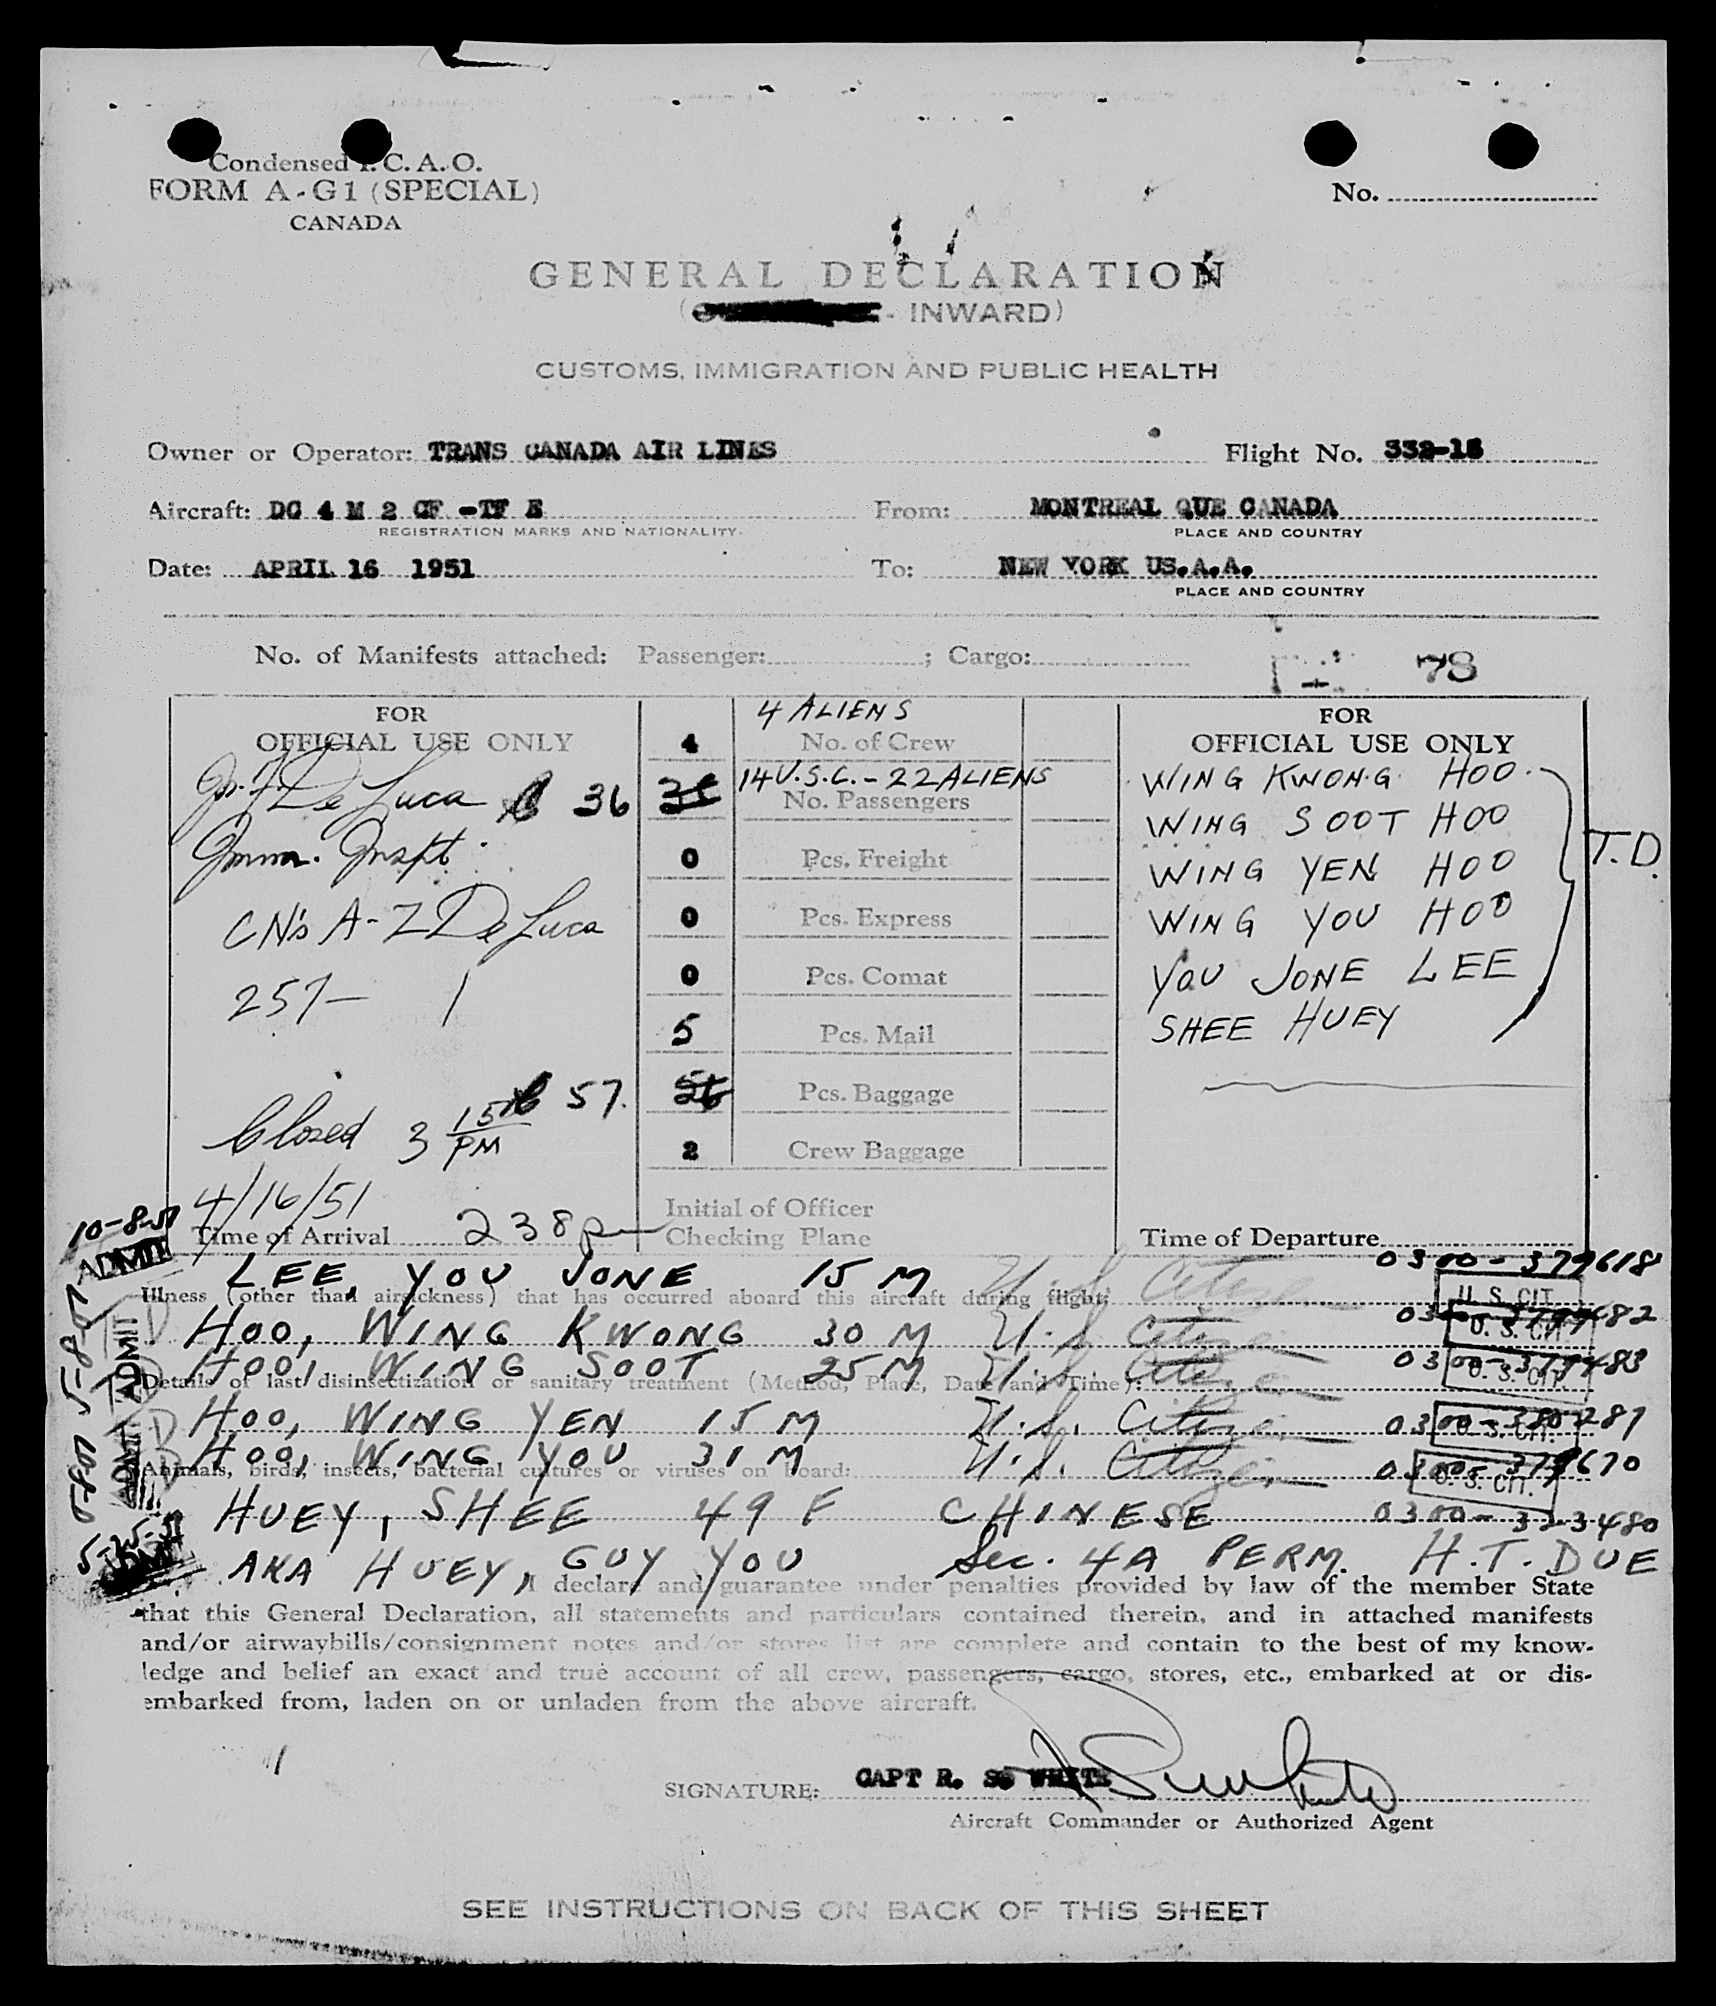 Condensed I. C. A. O.
FORM A-G1 (SPECIAL)
CANADA
No.
GENERAL DECLARATION
- INWARD)
CUSTOMS, IMMIGRATION AND PUBLIC HEALTH
Owner or Operator: TRANS CANADA AIR LINES Flight No.
Aircraft: DC 4 M 2 CF -TF E From: MONTREAL QUE CANADA
REGISTRATION MARKS AND NATIONALITY. PLACE AND COUNTRY
Date: APRIL 16 1951 To: NEW YORK US.A.A.
PLACE AND COUNTRY
No. of Manifests attached: Passenger: ; Cargo: 78
FOR OFFICIAL USE ONLY
De Luca 36
Imm. Inspt.
CN's A-Z De Luca
257- 1
57.
Closed 3 15 PM
4/16/51
Time of Arrival 238p
4 ALIENS
4 No. of Crew
14 U.S.C. - 22 ALIENS
No. Passengers
0 Pcs. Freight
0 Pcs. Express
0 Pcs. Comat
5 Pcs. Mail
56 Pcs. Baggage
2 Crew Baggage
Initial of Officer
Checking Plane
FOR
OFFICIAL USE ONLY
WING KWONG HOO
WING SOOT HOO
WING YEN HOO
WING YOU HOO
YOU JONE LEE
SHEE HUEY
T.D.
Time of Departure
10-8-51
ADMIT
LEE, YOU JONE 15 M U.S. Citizen 0300-379618
U. S. CIT.
Illness (other than airsickness) that has occurred aboard this aircraft during flight:
HOO, WING KWONG 30 M U.S. Citizen
U. S. CIT.
HOO, WING SOOT 25 M U.S. Citizen
U. S. CIT.
Details of last disinsectization or sanitary treatment (Method, Place, Date and Time):
HOO, WING YEN 15 M U.S. Citizen 0300-380287
U. S. CIT.
HOO, WING YOU 31 M U.S. Citizen 0300-379670
U. S. CIT.
Animals, birds, insects, bacterial cultures or viruses on board:
HUEY, SHEE 49 F CHINESE 0300-
AKA HUEY, GUY YOU Sec. 4A PERM. H.T. DUE
ADMIT
ADMIT
I declare and guarantee under penalties provided by law of the member State
that this General Declaration, all statements and particulars contained therein, and in attached manifests
and/or airwaybills/consignment notes and/or stores list are complete and contain to the best of my know-
ledge and belief an exact and true account of all crew, passengers, cargo, stores, etc., embarked at or dis-
embarked from, laden on or unladen from the above aircraft.
SIGNATURE: CAPT R. S. WHITE
Aircraft Commander or Authorized Agent
SEE INSTRUCTIONS ON BACK OF THIS SHEET